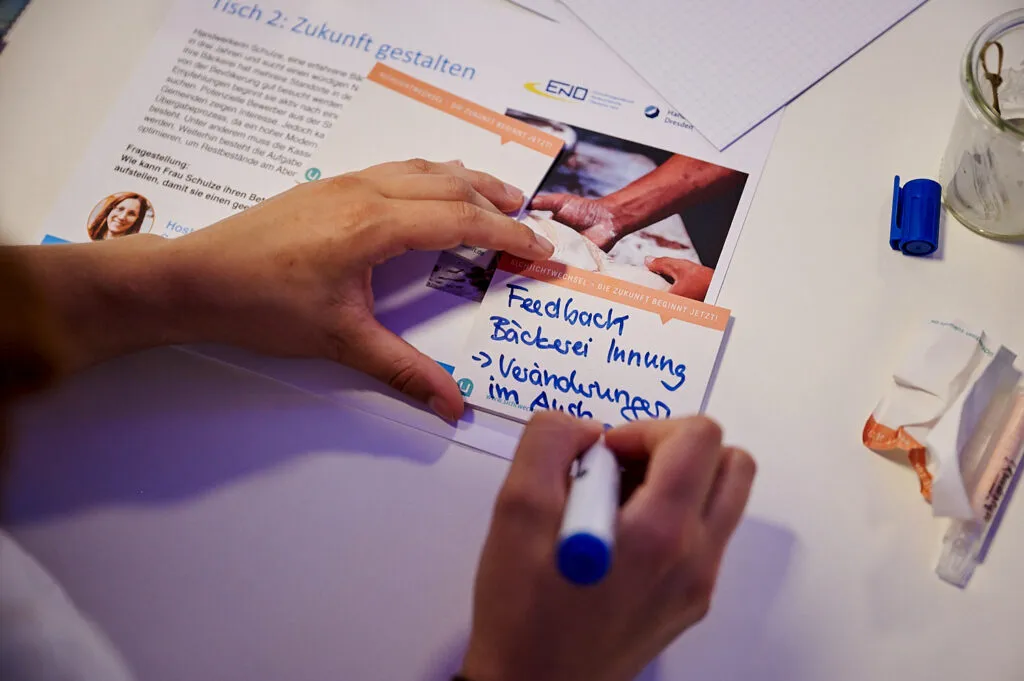 Tisch 2: Zukunft gestalten
Handwerkerin Schulze, eine erfahrene
in drei Jahren und sucht einen würdigen
Ihre Bäckerei hat mehrere Standorte in
von der Bevölkerung gut besucht werden.
Empfehlungen beginnt sie aktiv nach
suchen. Potenzielle Bewerber aus der
Gemeinden zeigen Interesse. Jedoch
Übergabeprozess, da ein hoher
besteht. Unter anderem muss die
werden. Weiterhin besteht die Aufgabe
optimieren, um Restbestände am
Fragestellung:
Wie kann Frau Schulze ihren
aufstellen, damit sie einen
SICHTWECHSEL - DIE ZUKUNFT BEGINNT JETZT!
ENO
Dresden
SICHTWECHSEL - DIE ZUKUNFT BEGINNT JETZT!
Feedback
Bäckerei Innung
→ Veränderungen
im